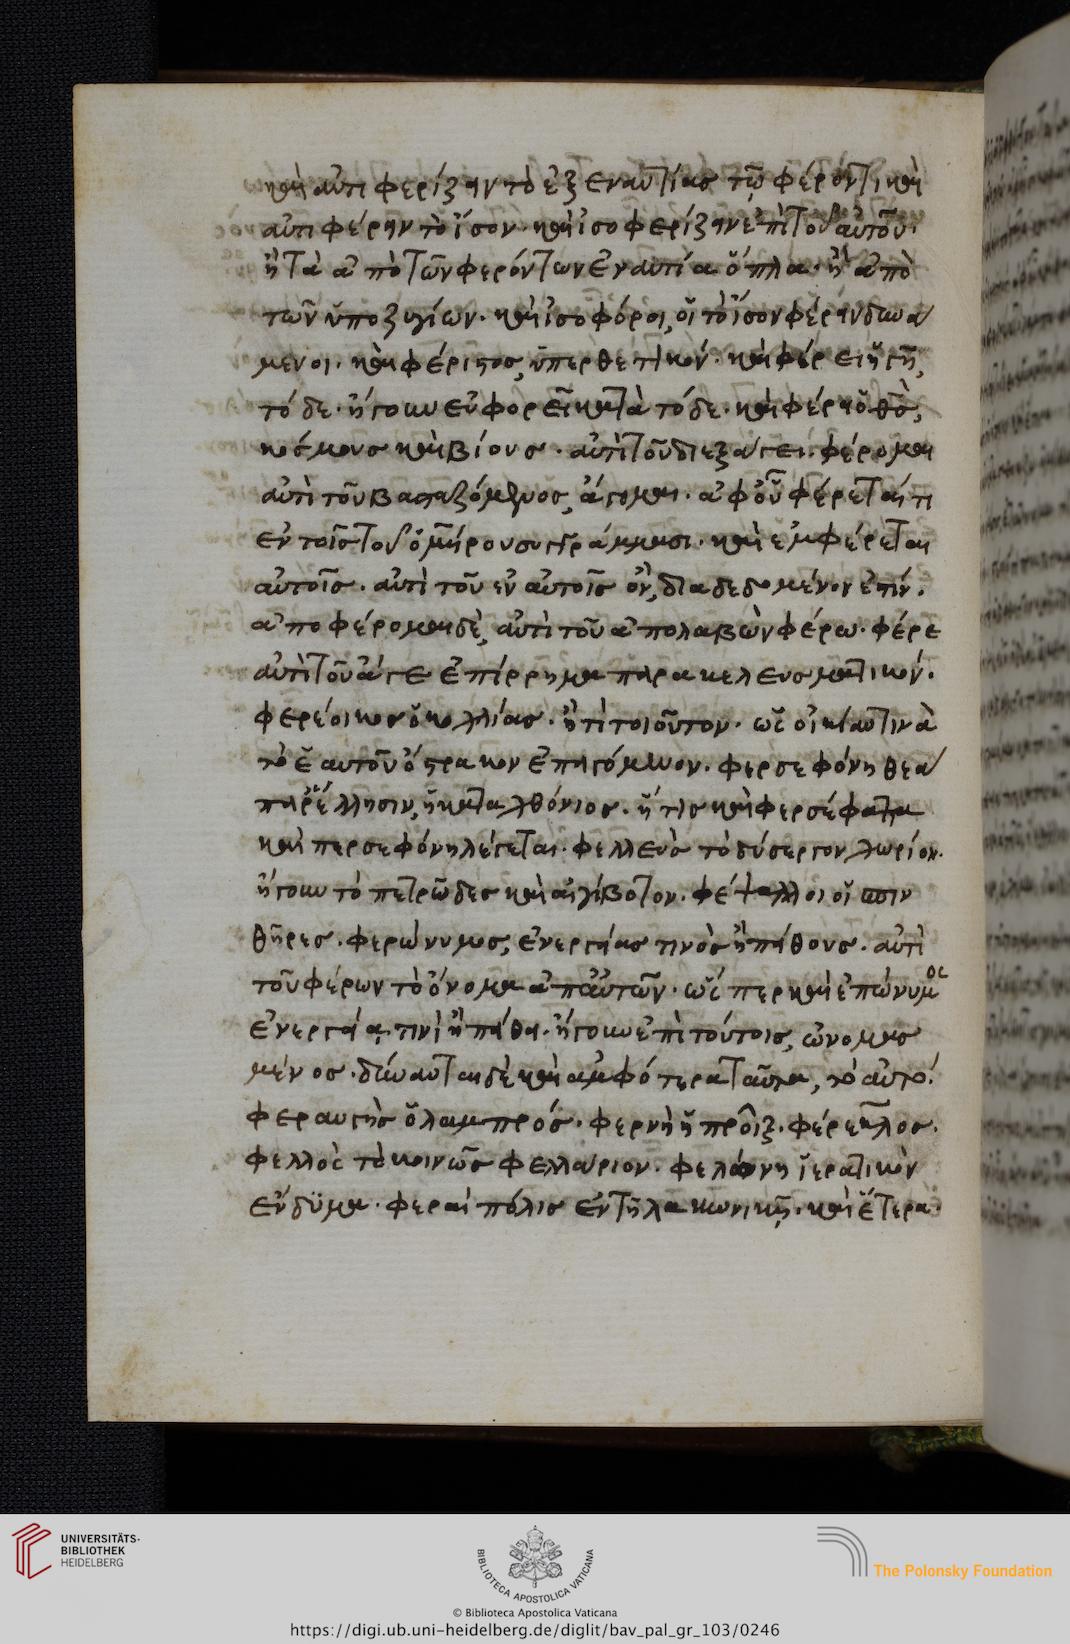 καὶ ἀντιφερίζειν τὸ ἐξ ἐναντίας τῶ φέροντι καὶ
ἀντιφέρειν τὸ ἴσον. καὶ ἰσοφερίζειν ἐπὶ τοῦ αὐτοῦ.
ἢ τὰ ἀπὸ τῶν φερόντων ἐναντία ὅπλα. ἢ ἀπὸ
τῶν ὑποζυγίων. καὶ ἰσοφόροι, οἱ τὸ ἴσον φέρειν δυνά
μενοι. καὶ φέριστος, ὑπερθετικόν. καὶ φέρει ἡ γῆ,
τόδε. ἤγουν εὐφορεῖ κατὰ τόδε. καὶ φέρει ὁ θς,
κόσμους καὶ βίους. ἀντὶ τοῦ διεξάγει. φέρομαι
ἀντὶ τοῦ βασταζόμενος, ἄγομαι. ἀφ' οὗ φέρεταί τι
ἐν τοῖς τοῦ ὁμήρου συγγράμμασι. καὶ ἐμφέρεται
αὐτοῖς. ἀντὶ τοῦ ἐν αὐτοῖς ὂν, διαδεδομένον ἐστίν.
ἀποφέρομαι δὲ, ἀντὶ τοῦ ἀπολαβὼν φέρω. φέρε
ἀντὶ τοῦ ἄγε ἐπίρρημα παρακελευσματικόν.
φερέοικος ὁ κοχλίας. ἤ τι τοιοῦτον. ὡς οἰκίαν τινὰ
τὸ ἑαυτοῦ ὄστρακον ἐπαγόμενον. φερσεφόνη θεὰ
παρ' ἕλλησιν, ἡ καταχθόνιος. ἥτις καὶ φερσέφαττα
καὶ περσεφόνη λέγεται. φελλεὺς τὸ δύσεργον χωρίον.
ἤγουν τὸ πετρῶδες καὶ αἰγίβοτον. φέψαλλοι οἱ
θῆρες. φερώνυμος, ἐνεργείας τινὸς ἢ πάθους. ἀντὶ
τοῦ φέρων τὸ ὄνομα ἀπ' αὐτῶν. ὥσπερ καὶ ἐπώνυμος
ἐνεργείᾳ τινὶ ἢ πάθει. ἤγουν ἐπὶ τούτοις, ὠνομασ
μένος. δύναται δὲ καὶ ἀμφότερα ταῦτα, τὸ αὐτό.
φεραυγὴς ὁ λαμπρός. φερνὴ ἡ προῖξ. φέρεκλος.
φελλὸς τὸ κοινῶς φελλάριον. φελόνη ἱερατικὸν
ἔνδυμα. φεραὶ πόλις ἐν τῆ λακωνικῆ. καὶ ἕτερα
UNIVERSITÄTS-
BIBLIOTHEK
HEIDELBERG
BIBLIOTECA APOSTOLICA VATICANA
The Polonsky Foundation
© Biblioteca Apostolica Vaticana
https://digi.ub.uni-heidelberg.de/diglit/bav_pal_gr_103/0246